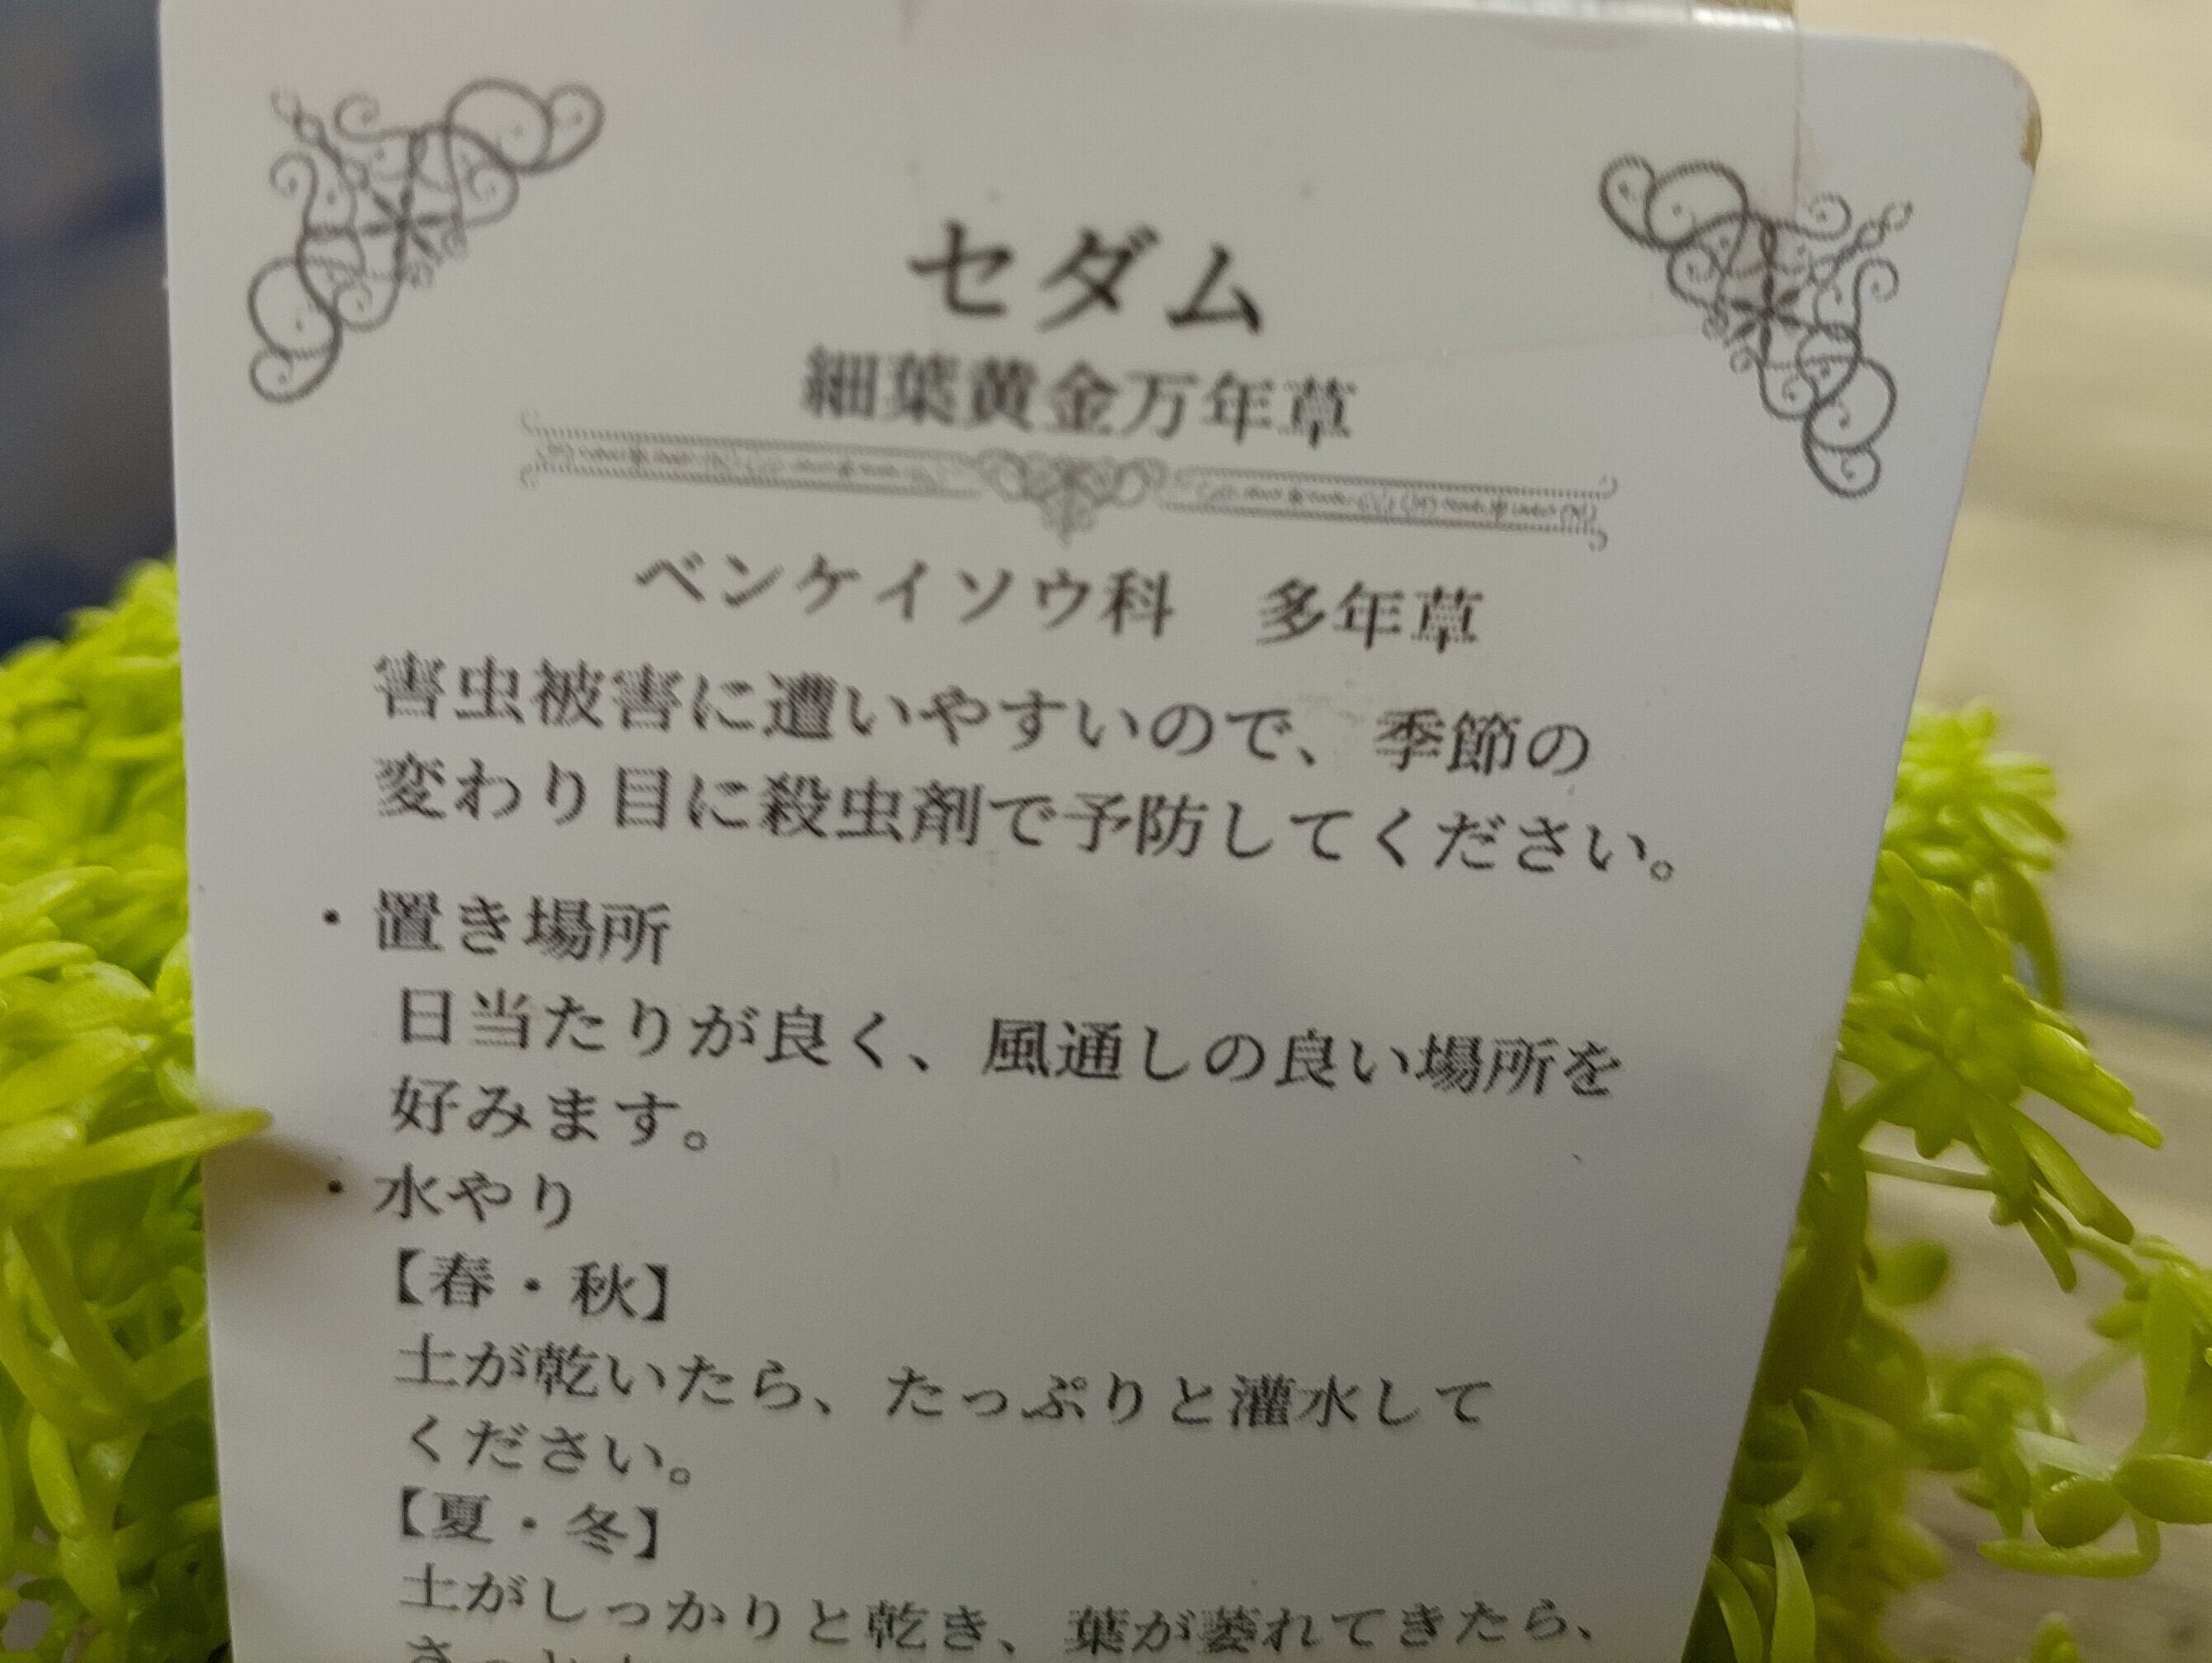 セダム
細葉黄金万年草
ベンケイソウ科　多年草
害虫被害に遭いやすいので、季節の
変わり目に殺虫剤で予防してください。
・置き場所
日当たりが良く、風通しの良い場所を
好みます。
・水やり
【春・秋】
土が乾いたら、たっぷりと灌水して
ください。
【夏・冬】
土がしっかりと乾き、葉が萎れてきたら、